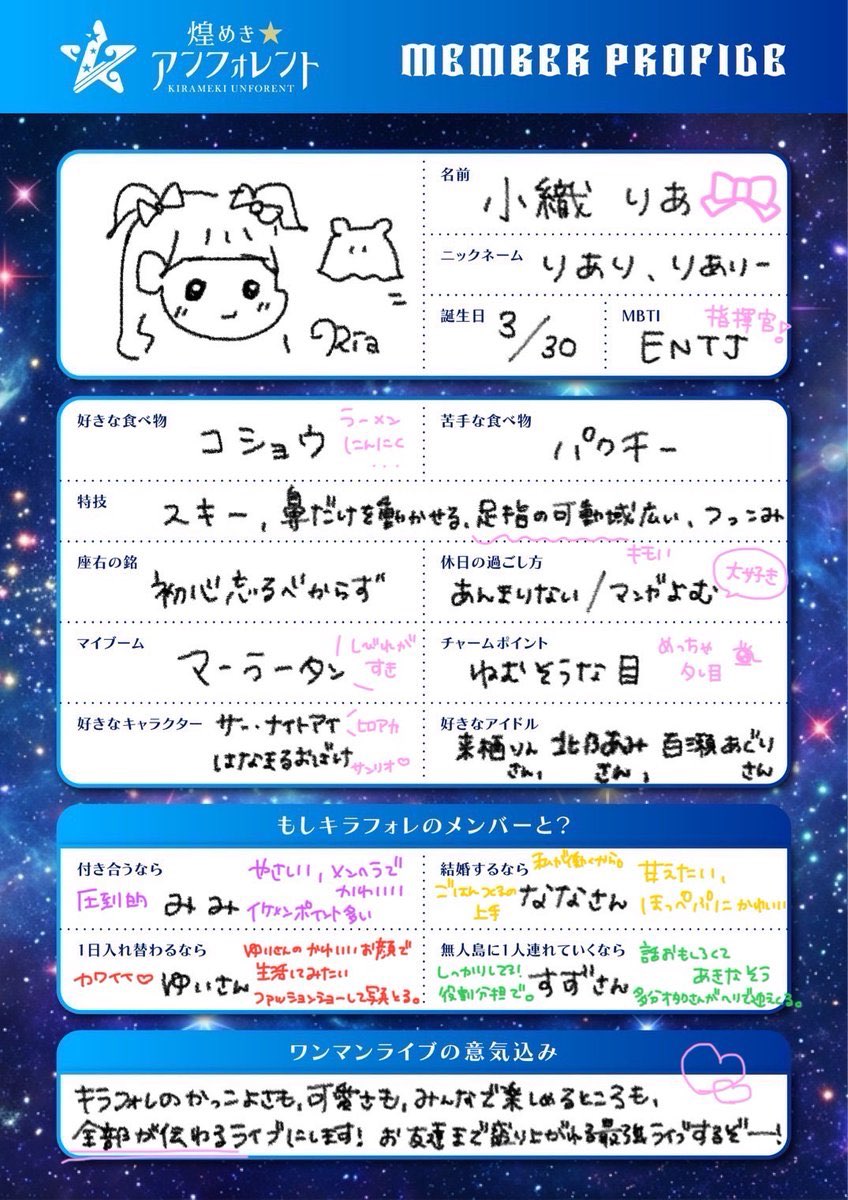 煌めき★
アンフォレント
KIRAMEKI UNFORENT
MEMBER PROFILE
Ria
名前
小織 りあ
ニックネーム
りあり、りありー
誕生日
3/30
MBTI
指揮官!
ENTJ
好きな食べ物
コショウ
ラーメン
にんにく
...
苦手な食べ物
パクチー
特技
スキー, 鼻だけを動かせる、足指の可動域広い、つっこみ
キモい
座右の銘
初心忘るべからず
休日の過ごし方
あんまりない/マンガよむ
大好き
マイブーム
マーラータン
しびれが
すき
チャームポイント
ねむそうな目
めっちゃ
タレ目
好きなキャラクター
サー・ナイトアイ
ヒロアカ
はなまるおばけ
サンリオ♡
好きなアイドル
来栖りん
さん,
北乃あみ
さん,
百瀬あぐり
さん
もしキラフォレのメンバーと?
付き合うなら
圧倒的
みみ
やさしい, メンヘラで
かわいい
イケメンポイント多い
結婚するなら
私が働くから。
ごはんつくるの
上手
ななさん
甘えたい,
ほっぺぷにかわいい
1日入れ替わるなら
カワイイ♡
ゆいさん
ゆいさんのかわいいお顔で
生活してみたい
ファッションショーして写真とる。
無人島に1人連れていくなら
しっかりしてる!
役割分担で。
すずさん
話おもしろくて
あきなそう
ワンマンライブの意気込み
キラフォレのかっこよさも,可愛さも,みんなで楽しめるところも、
全部が伝わるライブにします! お友達まで盛り上がれる最強ライブするぞー!